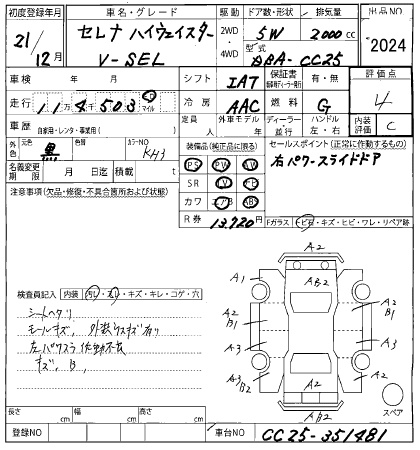 初度登録年月 車名・グレード 駆動 ドア数・形状 排気量 出品NO
21/12月 セレナ ハイウェイスター V-SEL 2WD 4WD 5W 2000cc 2024
型式 DBA-CC25
車検 年 月 シフト IAT 保証書 有・無 評価点 4
走行 11万4千503 km マイル 冷房 AAC 燃料 G
車歴 自家用・レンタ・事業用( ) 定員 人 外車モデル 年 ディーラー 並行 ハンドル 左・右 内装評価 C
外色 元色 黒 色替 カラーNO KH3 装備品(純正品に限る) セールスポイント(正常に作動するもの)
PS PW AW 右パワースライドドア
名義変更期限 月 日迄 積載 t SR TV
注意事項(欠品・修復・不具合箇所および状態) カワ エアB AB
R券 13,720円 Fガラス トビ石・キズ・ヒビ・ワレ・リペア跡
A2
A1 AB2
A2 B1 A2 B1
A3 A3
A3 B2 A2 A2
AB2
スペア
検査員記入 内装 汚レ・スレ・キズ・キレ・コゲ・穴
シートヘタリ
モールキズ、外装小スキズ有り
左パワスラ作動不良
キズ、B、
長さ cm 幅 cm 高さ cm
登録NO 車台NO CC25-351481